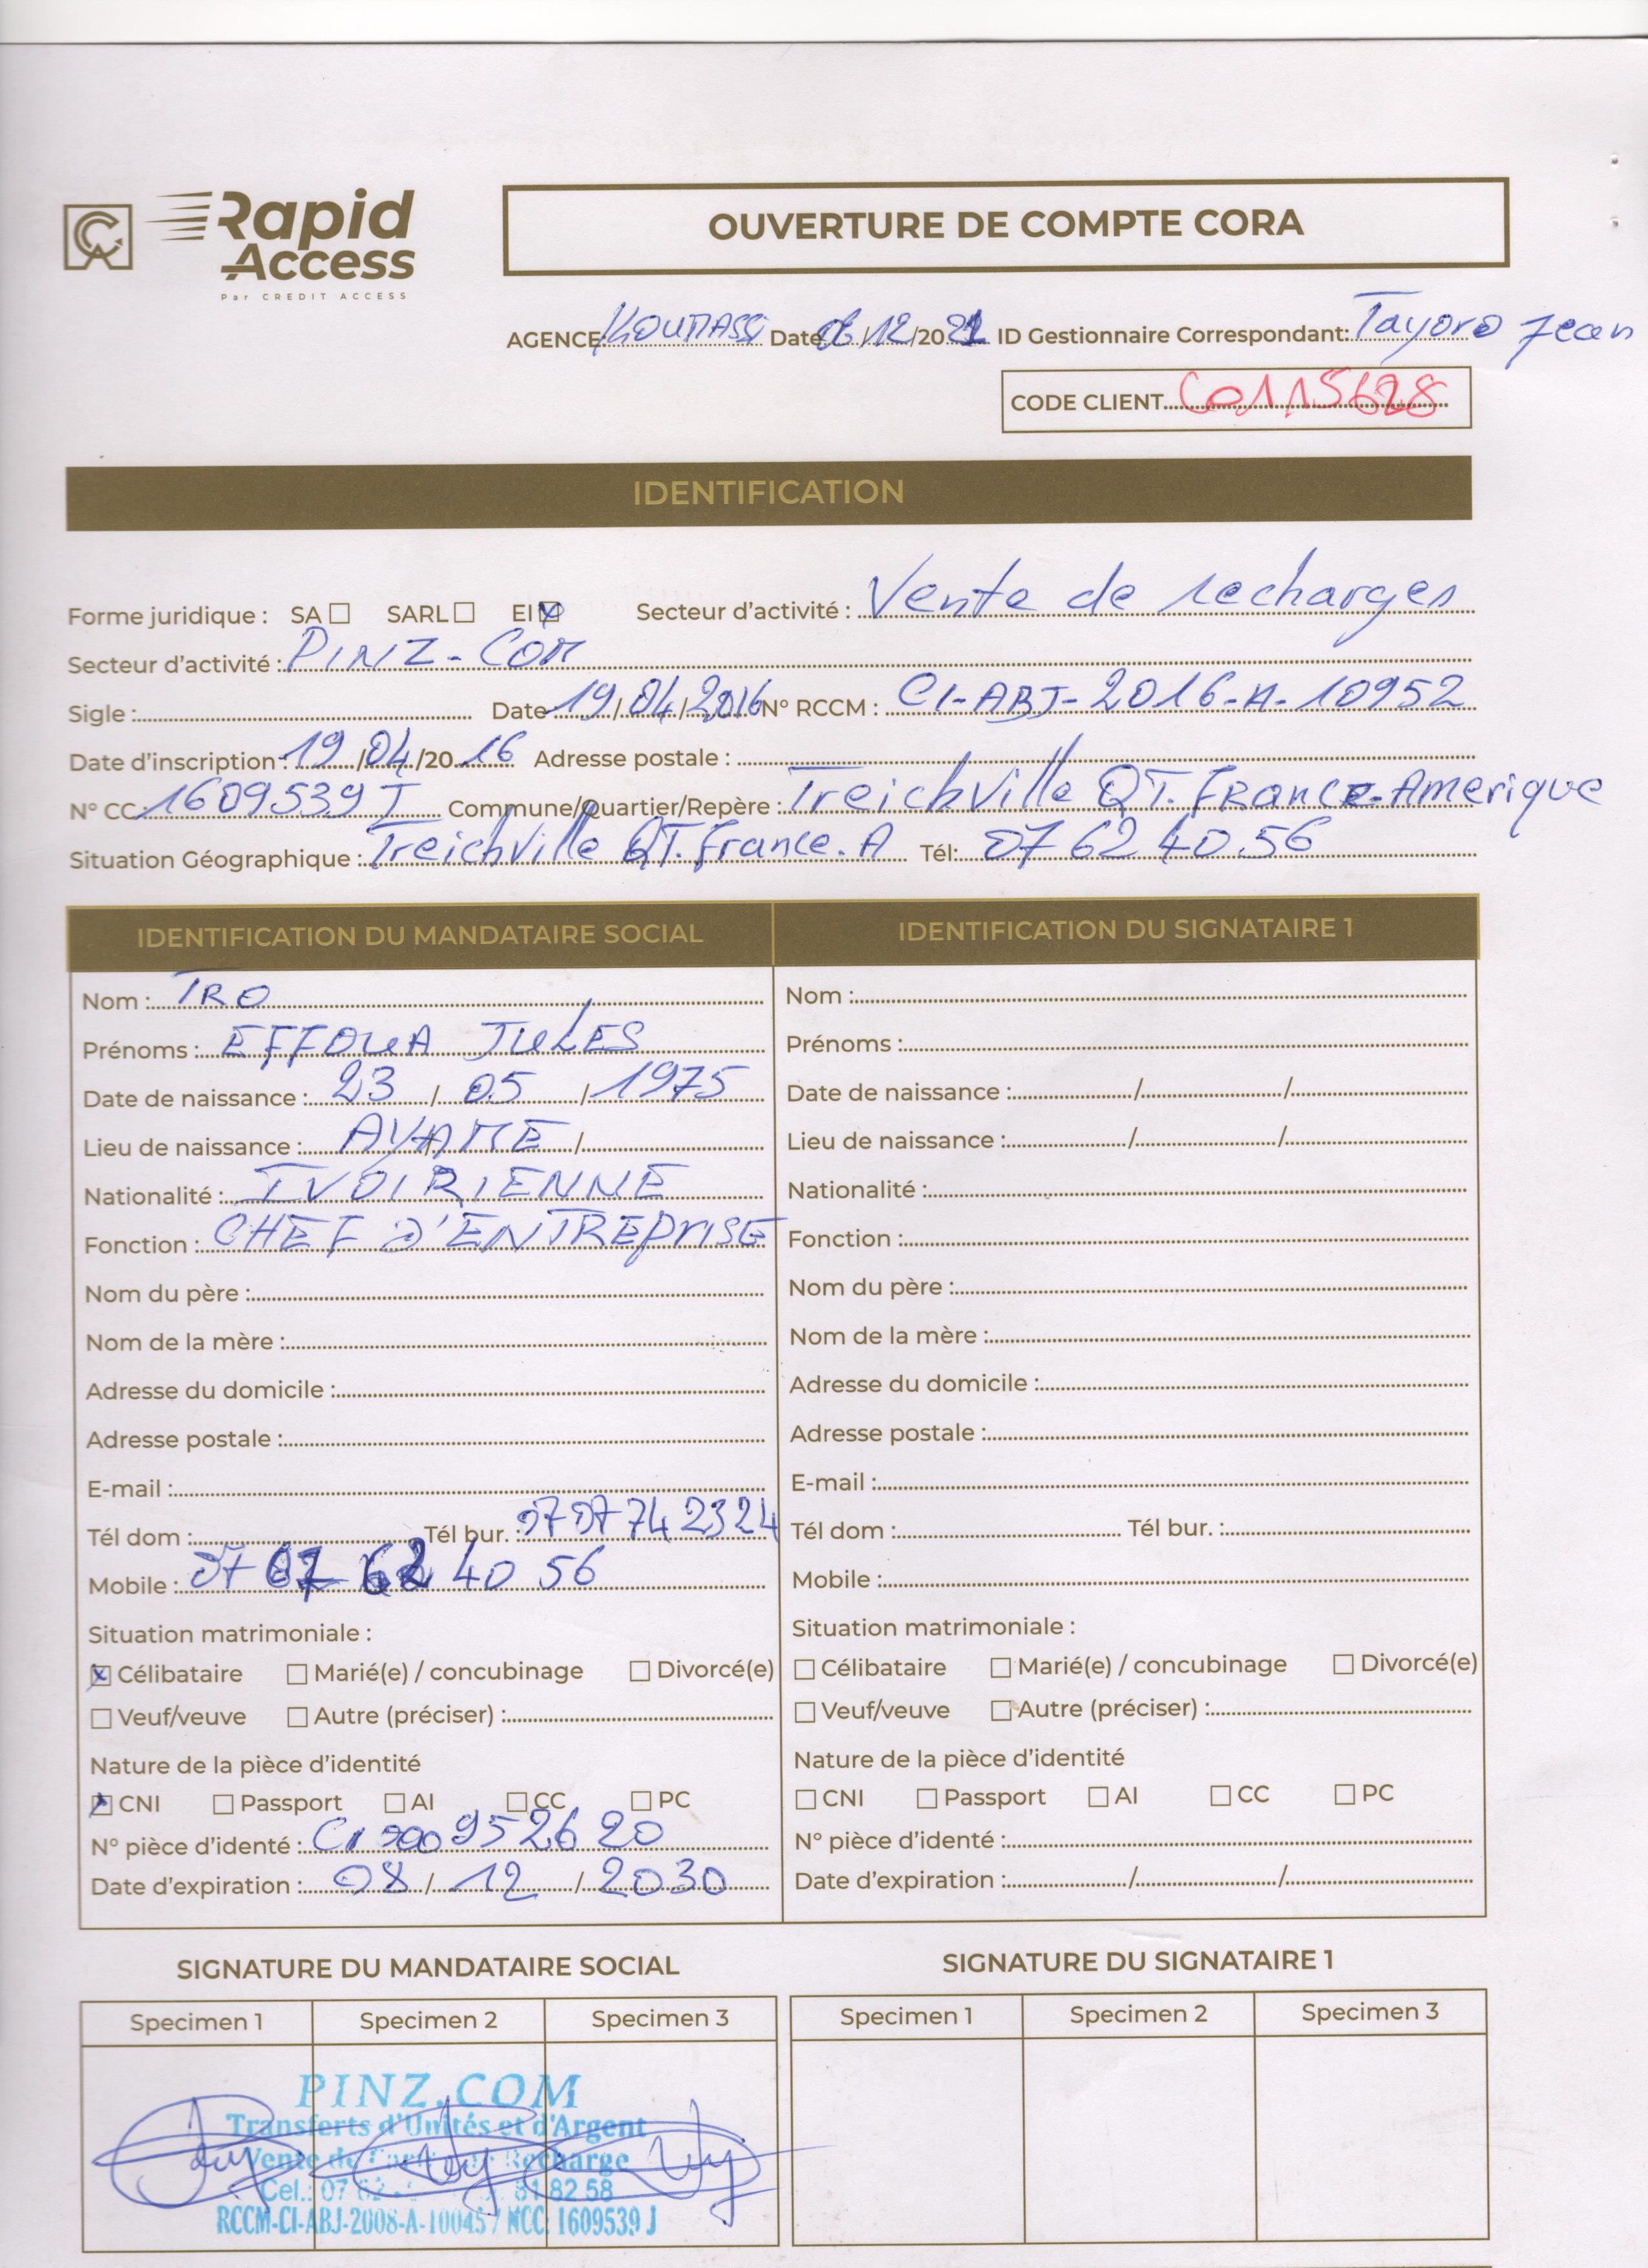 Rapid
Access
Par CREDIT ACCESS
OUVERTURE DE COMPTE CORA
AGENCE: KOUMASSI Date 06/12/2021 ID Gestionnaire Correspondant: Tayoro Jean
CODE CLIENT C0115628
IDENTIFICATION
Forme juridique : SA ☐ SARL ☐ EI ☒ Secteur d'activité : Vente de recharges
Secteur d'activité : PINZ-COM
Sigle : Date 19/04/2016 N° RCCM : CI-ABJ-2016-A-10952
Date d'inscription : 19/04/2016 Adresse postale :
N° CC 1609539 J Commune/Quartier/Repère : Treichville QT. France-Amerique
Situation Géographique : Treichville QT. France. A Tél: 07 62 40 56
IDENTIFICATION DU MANDATAIRE SOCIAL
Nom : TRO
Prénoms : EFFOUA JULES
Date de naissance : 23 / 05 / 1975
Lieu de naissance : AYAME /
Nationalité : IVOIRIENNE
Fonction : CHEF D'ENTREPRISE
Nom du père :
Nom de la mère :
Adresse du domicile :
Adresse postale :
E-mail :
Tél dom : Tél bur. : 07 07 74 23 24
Mobile : 07 07 62 40 56
Situation matrimoniale :
☒ Célibataire ☐ Marié(e) / concubinage ☐ Divorcé(e)
☐ Veuf/veuve ☐ Autre (préciser) :
Nature de la pièce d'identité
☒ CNI ☐ Passport ☐ AI ☐ CC ☐ PC
N° pièce d'identé : CI 000952620
Date d'expiration : 08 / 12 / 2030
IDENTIFICATION DU SIGNATAIRE 1
Nom :
Prénoms :
Date de naissance : / /
Lieu de naissance : / /
Nationalité :
Fonction :
Nom du père :
Nom de la mère :
Adresse du domicile :
Adresse postale :
E-mail :
Tél dom : Tél bur. :
Mobile :
Situation matrimoniale :
☐ Célibataire ☐ Marié(e) / concubinage ☐ Divorcé(e)
☐ Veuf/veuve ☐ Autre (préciser) :
Nature de la pièce d'identité
☐ CNI ☐ Passport ☐ AI ☐ CC ☐ PC
N° pièce d'identé :
Date d'expiration : / /
SIGNATURE DU MANDATAIRE SOCIAL
Specimen 1 Specimen 2 Specimen 3
PINZ.COM
Transferts d'Unités et d'Argent
Vente de Recharge
Cel.: 07 62 81 82 58
RCCM-CI-ABJ-2008-A-10045 / NCC 1609539 J
SIGNATURE DU SIGNATAIRE 1
Specimen 1 Specimen 2 Specimen 3